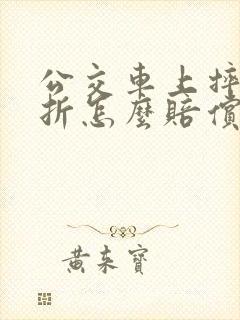 公交車上摔
折怎麼賠償
黄来寶